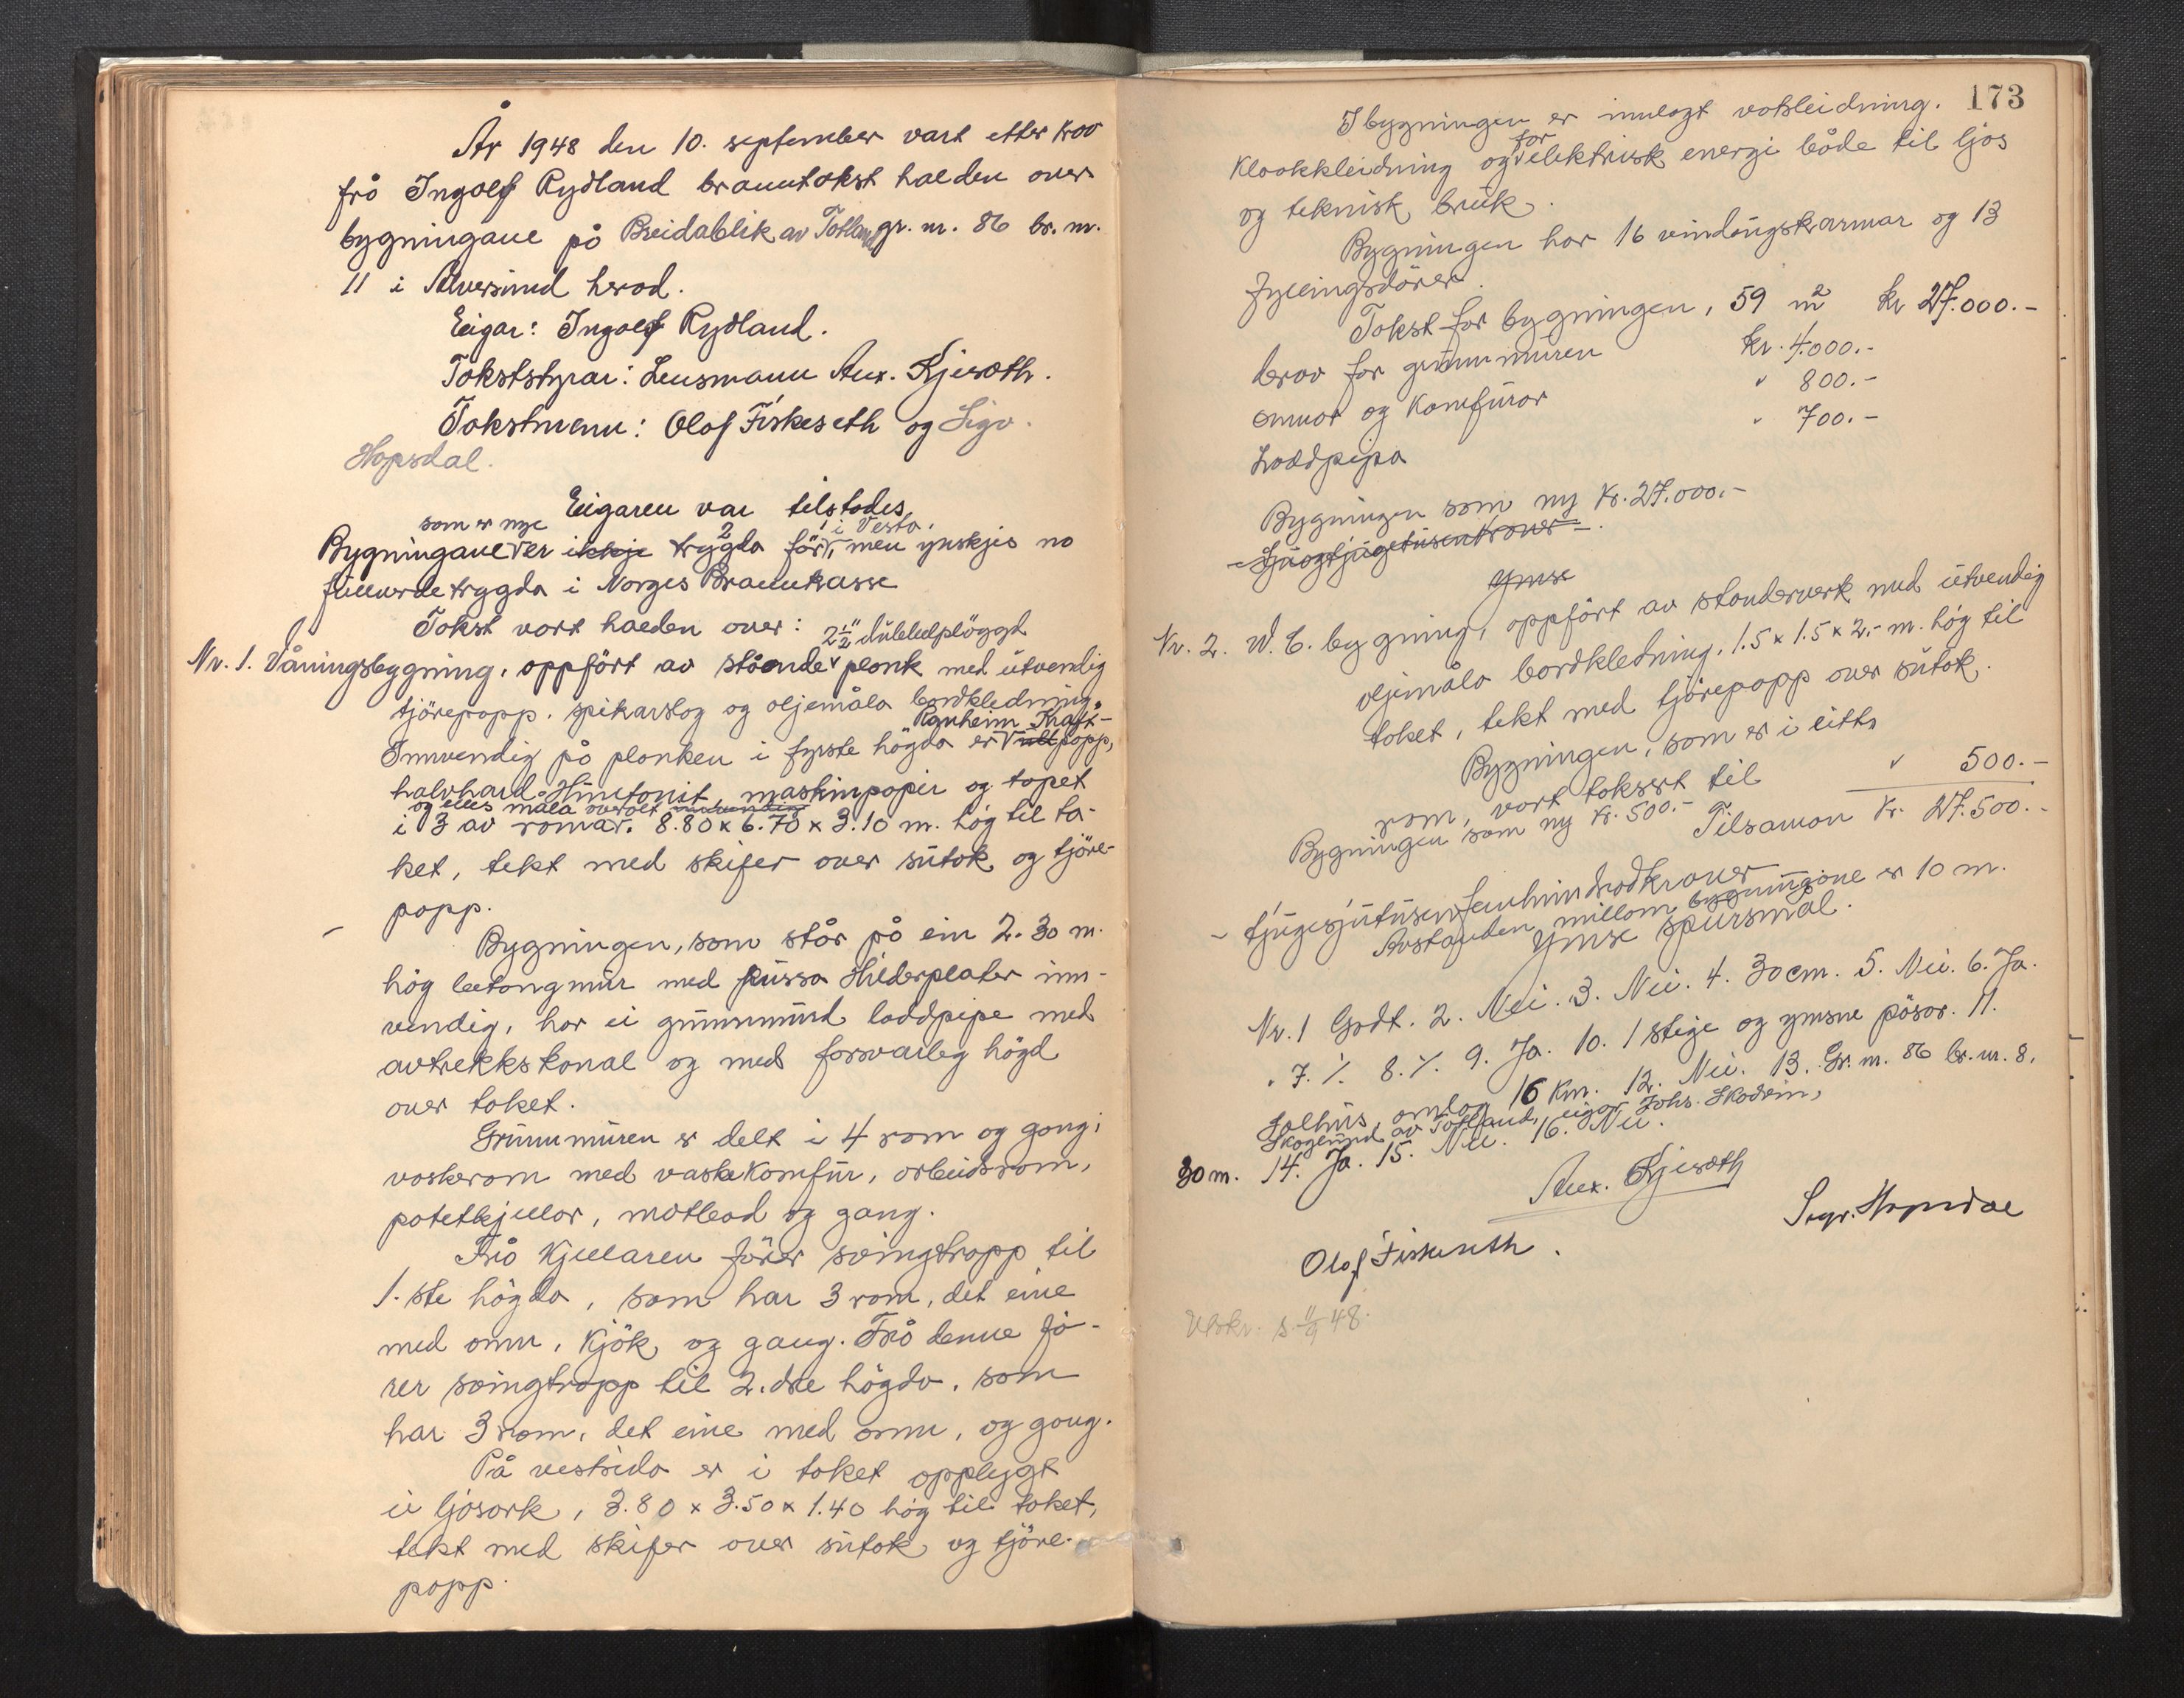 År 1948 den 10. september vart etter krav
frå Ingolf Rydland branntakst halden over
bygningane på Breidablik av Totland gr. nr. 86 br. nr.
11 i Alversund herad.
Eigar: Ingolf Rydland.
Takststyrar: Lensmann Alex. Kjeseth.
Takstmenn: Olaf Fiskeseth og Sigv.
Hopsdal.
Eigaren var tilstades
som er nye 2 i Vesta.
Bygningane er ikkje trygda för, men ynskjes no
fullverde trygda i Norges Brannkasse
Takst vart halden over:
2½" dubbelplöggd
Nr. 1. Våningsbygning, oppfört av ståande plank med utvendig
tjörepapp, spikarslag og oljemåla bordkledning.
Ranheim Kraft-
Innvendig på planken i fyrste högda er ullpapp,
halvhard Huntonit, maskinpapir og tapet
og elles måla overalt innvendig
i 3 av romar. 8.80 x 6.70 x 3.10 m. hög til ta-
ket, tekt med skifer over sutak og tjöre-
papp.
Bygningen, som står på ein 2.30 m.
hög betongmur med pussa Hulderplater inn-
vendig, har ei grunnmurd loddpipe med
avtrekkskanal og med forsvarleg högd
over taket.
Grunnmuren er delt i 4 rom og gang;
vaskerom med vaskekomfur, arbeidsrom,
potetkjellar, matbod og gang.
Frå kjellaren förer svingtrapp til
1.ste högda, som har 3 rom, det eine
med omn, kjök og gang. Frå denne fö-
rer svingtrapp til 2.dre högda, som
har 3 rom, det eine med omn, og gang.
På vestsida er i taket opplygt
ei ljosark, 3.80 x 3.50 x 1.40 hög til taket,
tekt med skifer over sutak og tjöre-
papp.
173
I bygningen er innlagt vassleidning.
for
Kloakkleidning og elektrisk energi både til ljos
og teknisk bruk.
Bygningen har 16 vindaugskarmar og 13
fyllingsdörer.
Takst for bygningen, 59 m² kr 27.000.-
derav for grunnmuren kr. 4.000.-
omnar og komfurar " 800.-
Loddpipa " 700.-
Bygningen som ny kr. 27.000.-
- Sjuogtjugetusenkroner -.
Ymse
Nr. 2. W.C. bygning, oppfört av standerverk med utvendig
oljemåla bordkledning, 1.5 x 1.5 x 2.- m. hög til
taket, tekt med tjörepapp over sutak.
Bygningen, som er i eitt
rom, vart taksert til " 500.-
Bygningen som ny kr. 500.-
Tilsaman kr. 27.500.-
- tjugesjutusenfemhundradkroner
Avstanden millom bygningane er 10 m.
Ymse spursmål.
Nr. 1 Godt. 2. Nei. 3. Nei. 4. 30 cm. 5. Nei. 6. Ja.
7. ⁒ 8. ⁒ 9. Ja. 10. 1 stige og ymsne pösar. 11.
Salhus, omlag 16 km. 12. Nei. 13. Gr. nr. 86 br. nr. 8.
Skoglund av Totland, eigar Johs. Skodvin,
30 m. 14. Ja. 15. Nei. 16. Nei.
Alex. Kjeseth
Sigv. Hopsdal
Olaf Fiskeseth.
Utskr. s. 11/9 48.